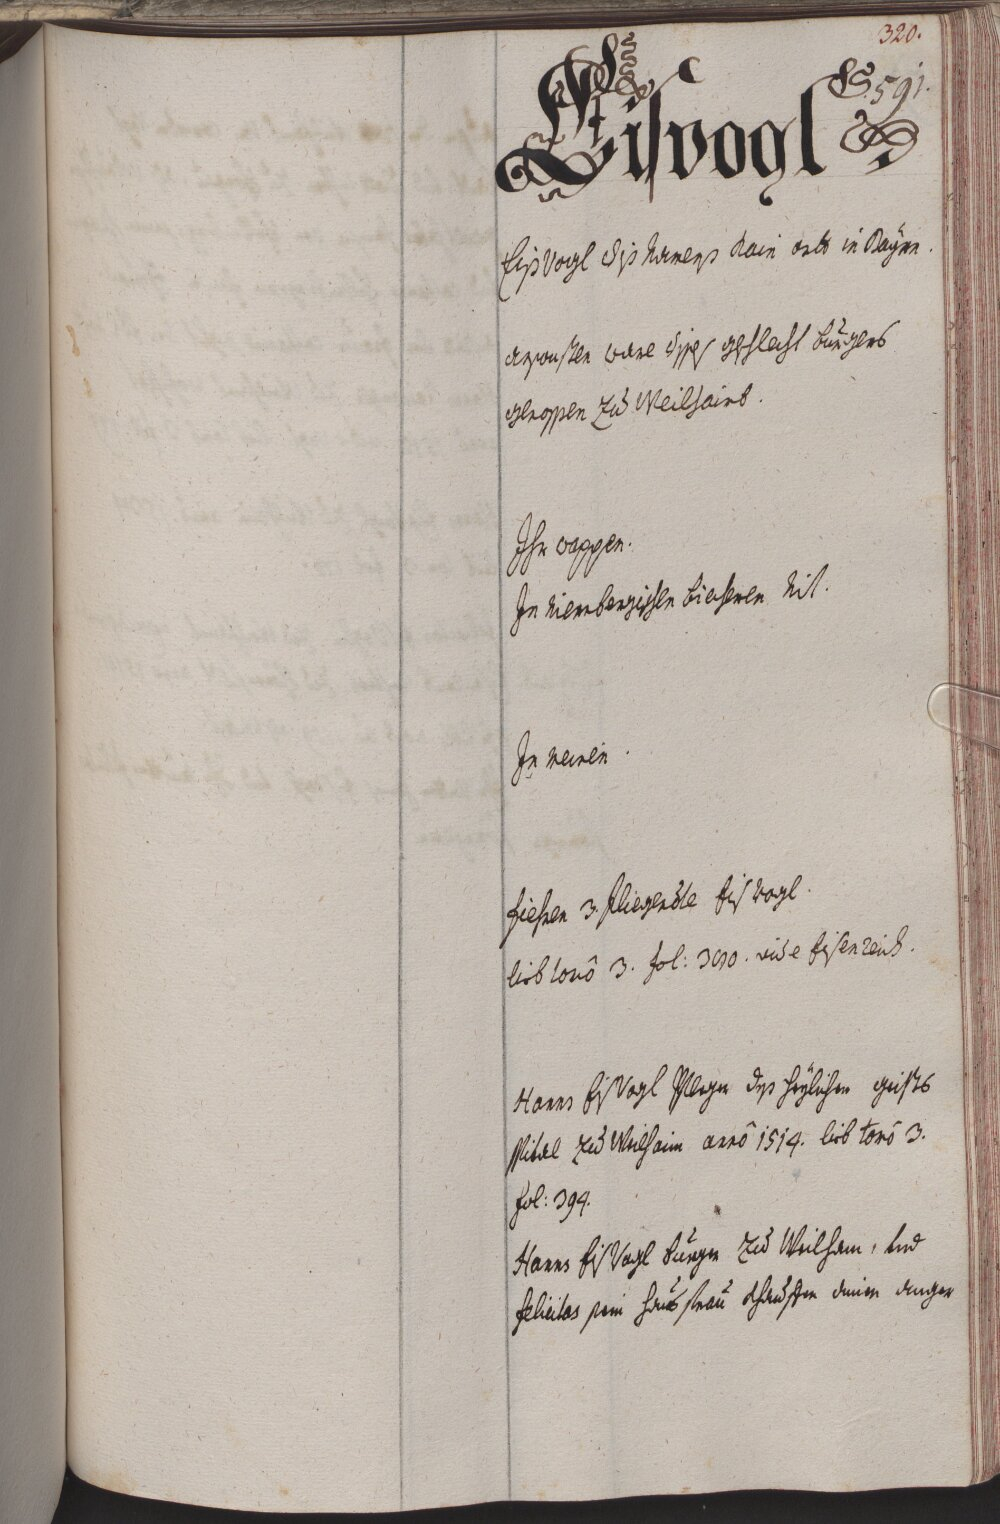 320.
S. 591.
Eisvogl
Eißvogl diß namens kain orth in Bayrn.
ansonsten ware dises geschlecht burgers
genossen zu Weilhaimb.
Ihr wappen.
In Niernbergischen biechern nit.
In meinen.
fiehren 3. fliegendte Eisvogl.
lib tomô 3. fol: 390. vide Eisenreich.
Hanns Eisvogl Pfleger deß heyligen geists
spital zu Weilhaim annô 1514. lib tomô 3.
fol: 394.
Hanns Eisvogl burger zu Weilhaim, und
felicitas sein hausfrau khaufften ainen anger